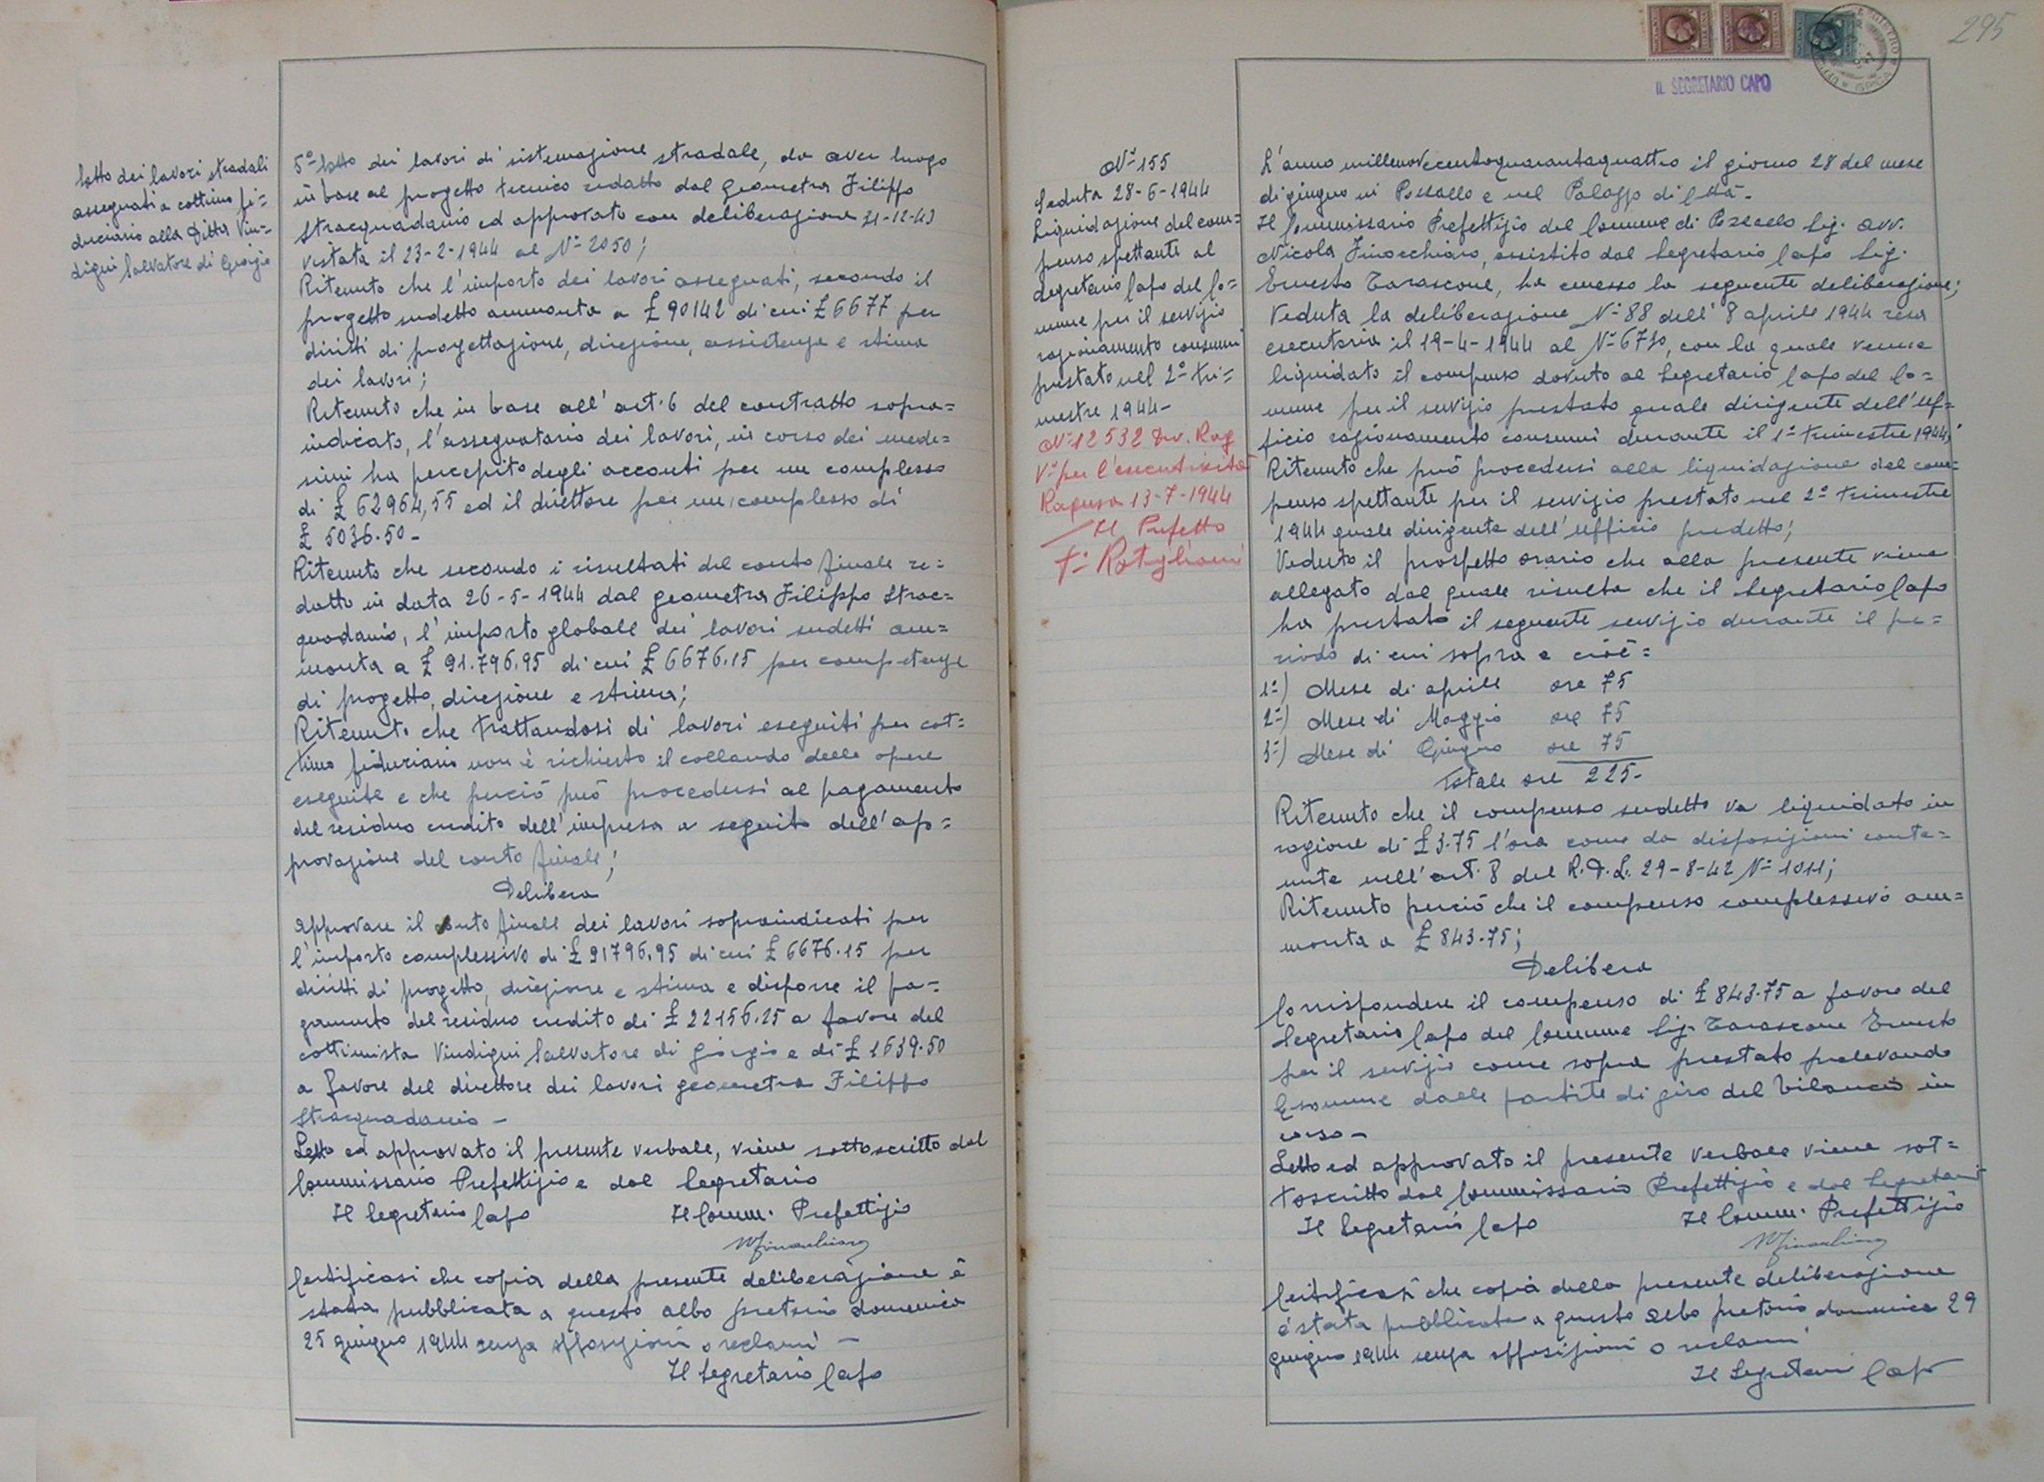 lotto dei lavori stradali
assegnati a cottimo fi=
duciario alla Ditta Vin=
digni Salvatore di Giorgio
5º lotto dei lavori di sistemazione stradale, da aver luogo
in base al progetto tecnico redatto dal geometra Filippo
Stracquadanio ed approvato con deliberazione 21-12-43
vistata il 23-2-1944 al Nº 2050;
Ritenuto che l'importo dei lavori assegnati, secondo il
progetto sudetto ammonta a £ 90142 di cui £ 6677 per
diritti di progettazione, direzione, assistenza e stima
dei lavori;
Ritenuto che in base all'art. 6 del contratto sopra=
indicato, l'assegnatario dei lavori, in corso dei mede=
simi ha percepito degli acconti per un complesso
di £ 62964,55 ed il direttore per un complesso di
£ 5036.50-
Ritenuto che secondo i risultati del conto finale re=
datto in data 26-5-1944 dal geometra Filippo Strac=
quadanio, l'importo globale dei lavori sudetti am=
monta a £ 91.796.95 di cui £ 6676.15 per competenze
di progetto, direzione e stima;
Ritenuto che trattandosi di lavori eseguiti per cot=
timo fiduciario non è richiesto il collaudo delle opere
eseguite e che perciò può procedersi al pagamento
del residuo credito dell'impresa a seguito dell'ap=
provazione del conto finale;
Delibera
approvare il conto finale dei lavori sopraindicati per
l'importo complessivo di £ 91796.95 di cui £ 6676.15 per
diritti di progetto, direzione e stima e disporre il pa=
gamento del residuo credito di £ 22156.25 a favore del
cottimista Vindigni Salvatore di Giorgio e di £ 1639.50
a favore del direttore dei lavori geometra Filippo
Stracquadanio -
Letto ed approvato il presente verbale, viene sottoscritto dal
Commissario Prefettizio e dal Segretario
Il Segretario Capo Il Comm. Prefettizio
NFinocchiaro
Certificasi che copia della presente deliberazione è
stata pubblicata a questo albo pretorio domenica
25 giugno 1944 senza opposizioni o reclami -
Il Segretario Capo
295
IL SEGRETARIO CAPO
Nº 155
Seduta 28-6-1944
Liquidazione del com=
penso spettante al
Segretario Capo del Co=
mune per il servizio
razionamento consumi
prestato nel 2º tri=
mestre 1944-
Nº 12532 Div. Rag
Vº per l'esecutività
Ragusa 13-7-1944
Il Prefetto
Fº Rotigliani
L'anno millenovecentoquarantaquattro il giorno 28 del mese
di giugno in Pozzallo e nel Palazzo di Città-
Il Commissario Prefettizio del Comune di Pozzallo Sig. avv.
Nicola Finocchiaro, assistito dal Segretario Capo Sig.
Ernesto Tarascone, ha emesso la seguente deliberazione;
Veduta la deliberazione Nº 88 dell'8 aprile 1944 resa
esecutoria il 19-4-1944 al Nº 6710, con la quale venne
liquidato il compenso dovuto al Segretario Capo del Co=
mune per il servizio prestato quale dirigente dell'uf=
ficio razionamento consumi durante il 1º trimestre 1944;
Ritenuto che può procedersi alla liquidazione del com=
penso spettante per il servizio prestato nel 2º trimestre
1944 quale dirigente dell'ufficio predetto;
Veduto il prospetto orario che alla presente viene
allegato dal quale risulta che il Segretario Capo
ha prestato il seguente servizio durante il pe=
riodo di cui sopra e cioè=
1º) Mese di aprile ore 75
2º) Mese di Maggio ore 75
3º) Mese di Giugno ore 75
Totale ore 225-
Ritenuto che il compenso sudetto va liquidato in
ragione di £ 3.75 l'ora come da disposizioni conte=
nute nell'art. 8 del R.D.L. 29-8-42 Nº 1011;
Ritenuto perciò che il compenso complessivo am=
monta a £ 843.75;
Delibera
Corrispondere il compenso di £ 843.75 a favore del
Segretario Capo del Comune Sig. Tarascone Ernesto
per il servizio come sopra prestato prelevando
la somma dalle partite di giro del bilancio in
corso-
Letto ed approvato il presente verbale viene sot=
toscritto dal Commissario Prefettizio e dal Segretario
Il Segretario Capo Il Comm. Prefettizio
NFinocchiaro
Certificasi che copia della presente deliberazione
è stata pubblicata a questo albo pretorio domenica 29
giugno 1944 senza opposizioni o reclami
Il Segretario Capo